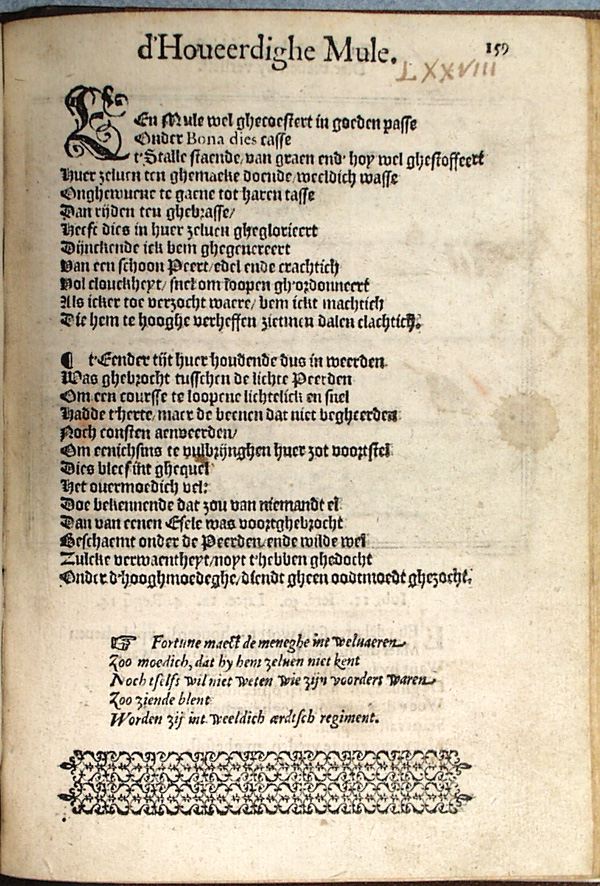 d'Houeerdighe Mule. 159
LXXVIII
EEn Mule wel ghecoestert in goeden passe
Onder Bona dies tasse
t'Stalle staende, van graen end' hoy wel ghestoffeert
Huer zeluen ten ghemacke doende/weeldich wasse
Onghewuene te gaene tot haren tasse
Dan rijden ten ghebrasse/
Heeft dies in huer zeluen gheglorieert
Dijnckende ick bem ghegenereert
Van een schoon Peert/edel ende crachtich
Vol clouckheyt/ snel om loopen gh'ordonneert
Als icker toe verzocht waere/ bem ickt machtich
Die hem te hooghe verheffen zietmen dalen clachtich.
¶ t'Eender tijt huer houdende dus in weerden
Was ghebrocht tusschen de lichte Peerden
Om een coursse te loopene lichtelick en snel
Hadde t'herte, maer de beenen dat niet begheerden
Noch consten aenveerden/
Om eenichsins te vulbrijnghen huer zot voortstel
Dies bleef int ghequel
Het ouermoedich vel:
Doe bekennende dat zou van niemandt el
Dan van eenen Esele was voortghebrocht
Geschaemt onder de Peerden/ende wilde wel
Zulcke verwaentheyt/noyt t'hebben ghedocht
Onder d'hooghmoedeghe/diendt gheen oodtmoedt ghezocht.
☞ Fortune maeckt de meneghe int weluaeren
Zoo moedich, dat hy hem zeluen niet kent
Noch tselfs wil niet weten wie zijn voorders waren
Zoo ziende blent
Worden zij int weeldich ærdtsch regiment.